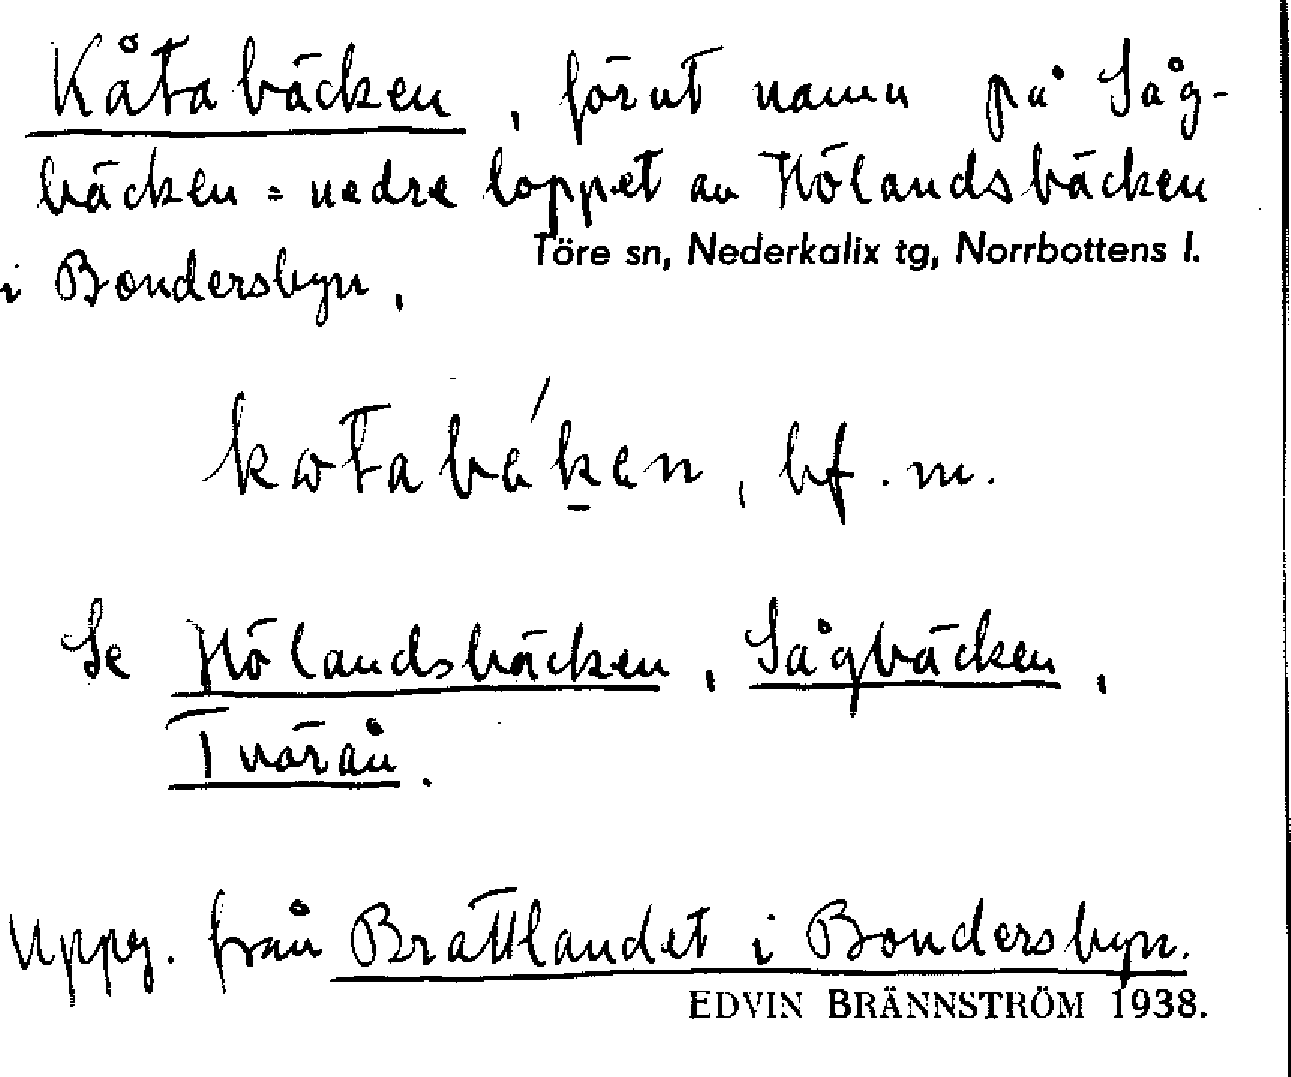 Kåtabäcken, förut namn på Såg-
bäcken = nedre loppet av Hölandsbäcken
Töre sn, Nederkalix tg, Norrbottens l.
i Bondersbyn.
bf. m.
Se Hölandsbäcken, Sågbäcken,
Tvärån.
Uppg. från Brattlandet i Bondersbyn.
EDVIN BRÄNNSTRÖM 1938.